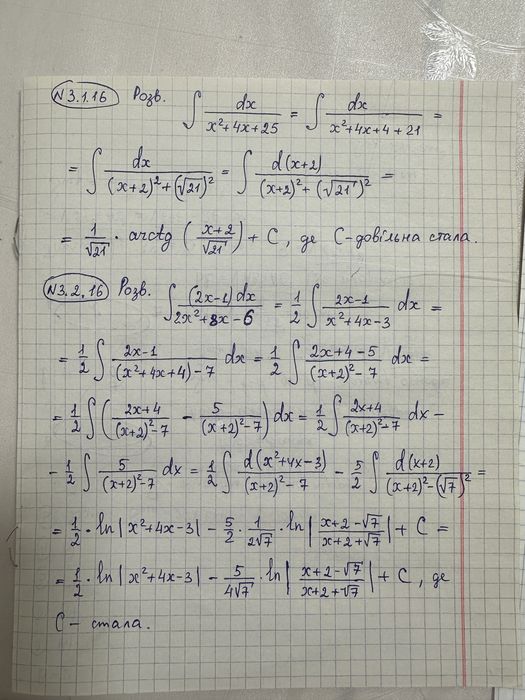 N3.1.16 Розв. ∫ dx / (x²+4x+25) = ∫ dx / (x²+4x+4+21) =
= ∫ dx / ((x+2)²+(√21)²) = ∫ d(x+2) / ((x+2)²+(√21)²) =
= 1/√21 · arctg (x+2 / √21) + C, де C-довільна стала.
N3.2.16 Розв. ∫ (2x-1)dx / (2x²+8x-6) = 1/2 ∫ (2x-1) / (x²+4x-3) dx =
= 1/2 ∫ (2x-1) / ((x²+4x+4)-7) dx = 1/2 ∫ (2x+4-5) / ((x+2)²-7) dx =
= 1/2 ∫ ((2x+4) / ((x+2)²-7) - 5 / ((x+2)²-7)) dx = 1/2 ∫ (2x+4) / ((x+2)²-7) dx -
- 1/2 ∫ 5 / ((x+2)²-7) dx = 1/2 ∫ d(x²+4x-3) / ((x+2)²-7) - 5/2 ∫ d(x+2) / ((x+2)²-(√7)²) =
= 1/2 · ln|x²+4x-3| - 5/2 · 1/(2√7) · ln|(x+2-√7) / (x+2+√7)| + C =
= 1/2 · ln|x²+4x-3| - 5/(4√7) · ln|(x+2-√7) / (x+2+√7)| + C, де
C- стала.